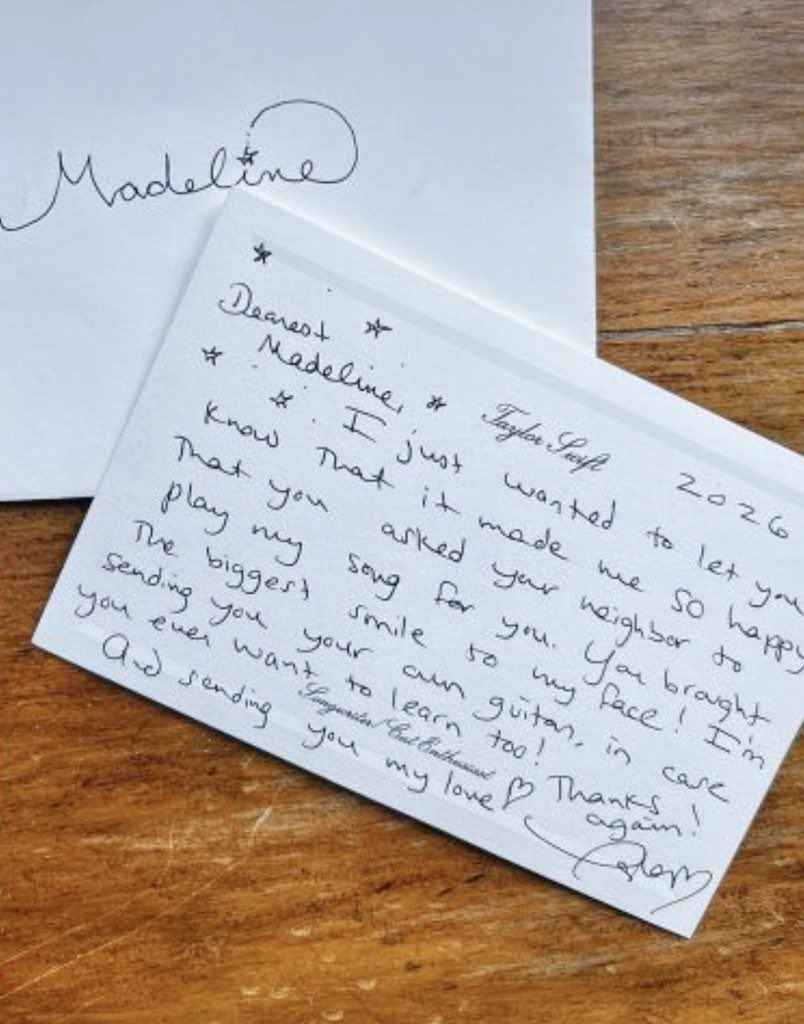 Madeline
Taylor Swift
2026
Dearest
Madeline,
I just wanted to let you
know that it made me so happy
that you asked your neighbor to
play my song for you. You brought
the biggest smile to my face! I'm
sending you your own guitar, in case
you ever want to learn too!
And sending you my love ♡ Thanks
again!
Songwriter / Cat Enthusiast
Taylor